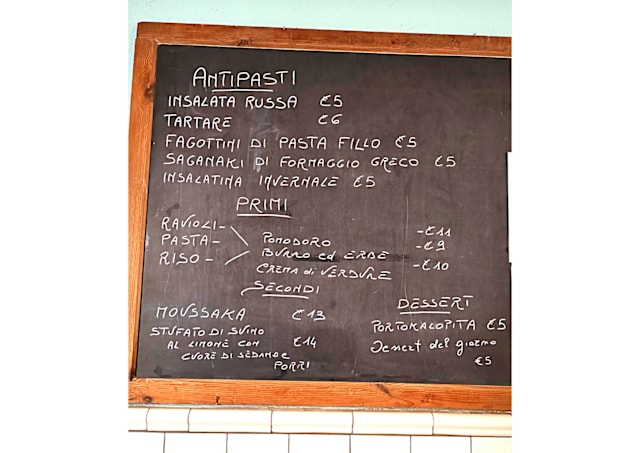 ANTIPASTI
INSALATA RUSSA €5
TARTARE €6
FAGOTTINI DI PASTA FILLO €5
SAGANAKI DI FORMAGGIO GRECO €5
INSALATINA INVERNALE €5
PRIMI
RAVIOLI - - €11
PASTA - POMODORO - €9
RISO - BURRO ed ERBE - €10
CREMA di VERDURE
SECONDI
MOUSSAKA €13
STUFATO DI SUINO
AL LIMONE CON €14
CUORE DI SEDANO E
PORRI
DESSERT
PORTOKALOPITA €5
Dessert del giorno
€5